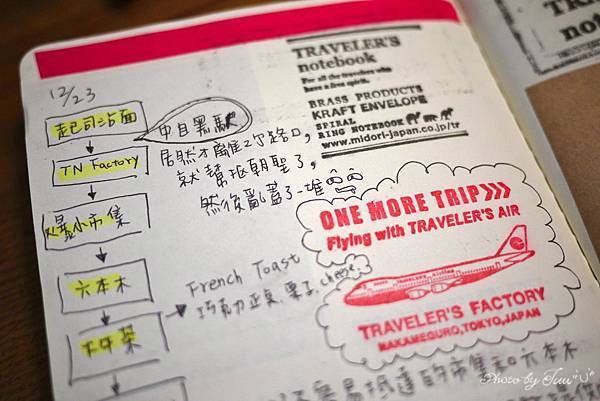 12/23
起司沾麵
TN Factory
爆小市集
六本木
下午茶
中目黑駅
居然才離2個路口,
就幫抵朝聖了。
然後亂蓋了一堆
French Toast
巧克力 栗子 cheese
TRAVELER'S
notebook
For all the travelers who
have a free spirit.
BRASS PRODUCTS
KRAFT ENVELOPE
SPIRAL
RING NOTEBOOK
www.midori-japan.co.jp/tr
ONE MORE TRIP>>>
Flying with TRAVELER'S AIR
TRAVELER'S FACTORY
NAKAMEGURO,TOKYO,JAPAN
容易抵達的市集和六本木
TRAVELER'S
notebook
Photo by